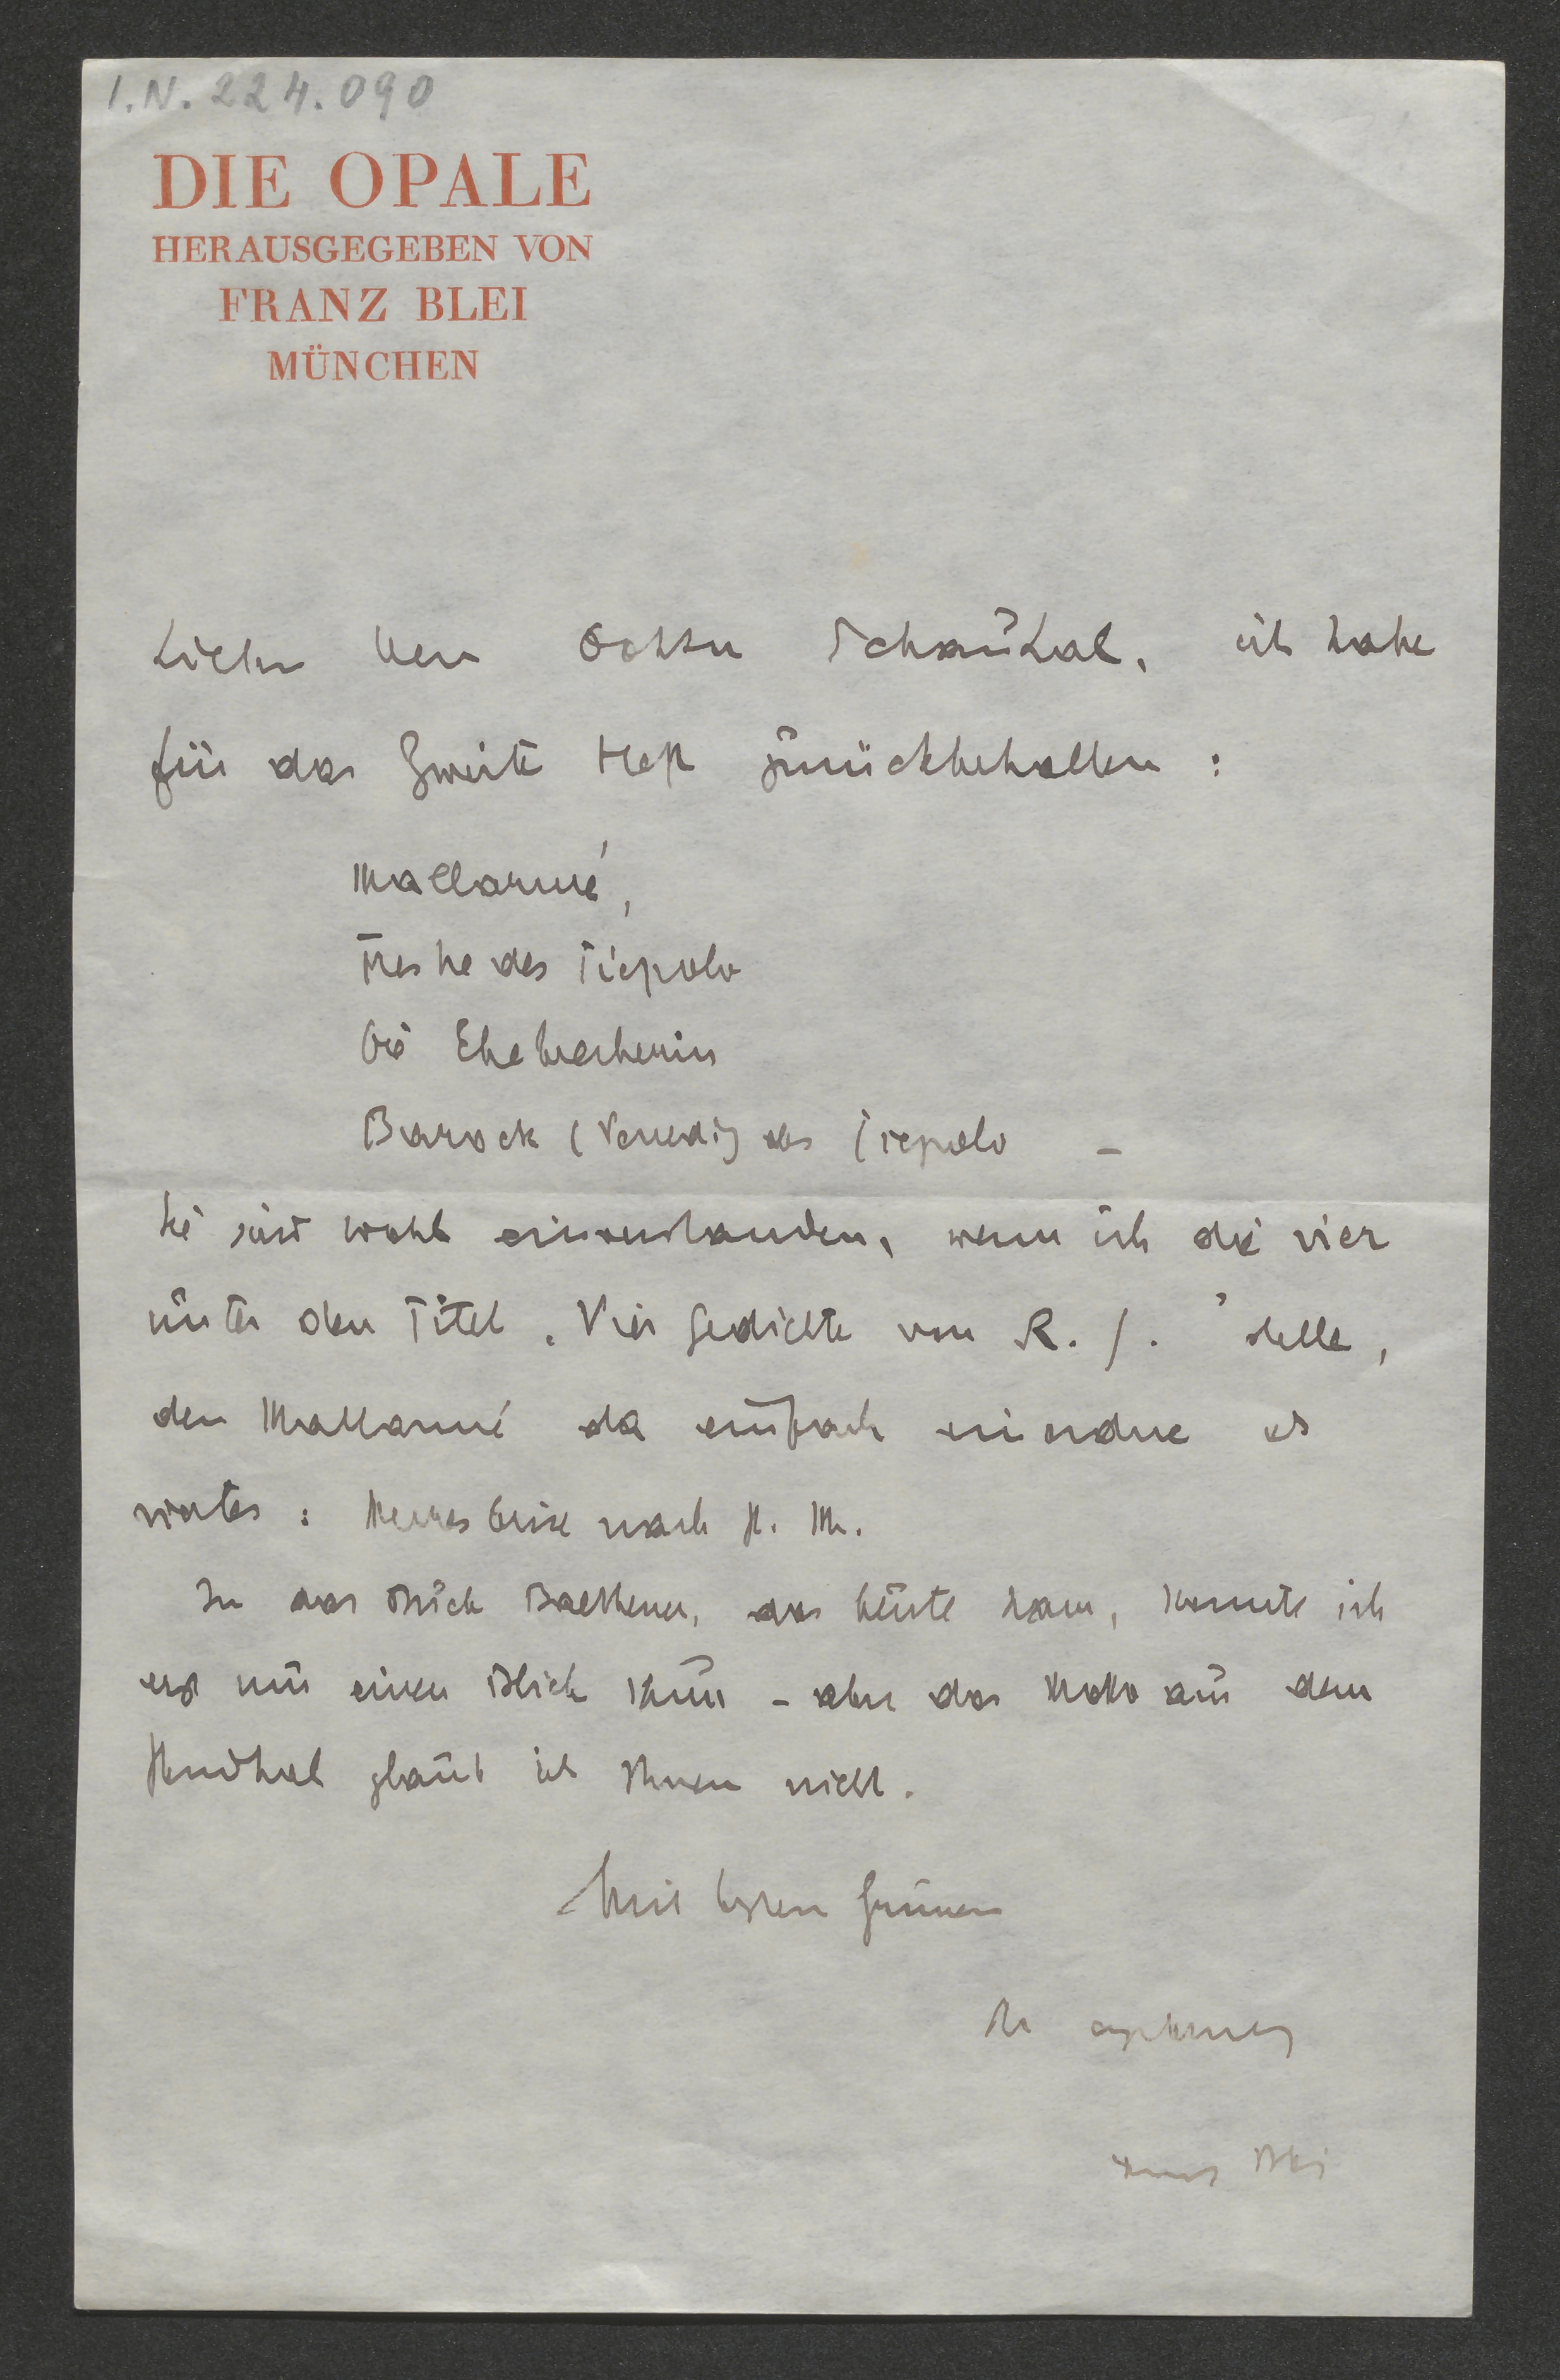 I.N. 224.090
DIE OPALE
HERAUSGEGEBEN VON
FRANZ BLEI
MÜNCHEN
Lieber Herr Doktor Schaukal, ich habe
für das zweite Heft zurückbehalten:
Mallarmé,
Freske des Tiepolo
Die Ehebrecherin
Barock (Venedig des Tiepolo –
Sie sind wohl einverstanden, wenn ich die vier
unter dem Titel „Vier Gedichte von R. S.“ stelle,
den Mallarmé da einfach einordne als
viertes: Meeresbrise nach St. M.
In das Buch Balthesser, das heute kam, konnte ich
erst nur einen Blick thun – aber das Motto aus dem
Stendhal glaub ich Ihnen nicht.
Mit besten Grüssen
Ihr ergebener
Franz Blei